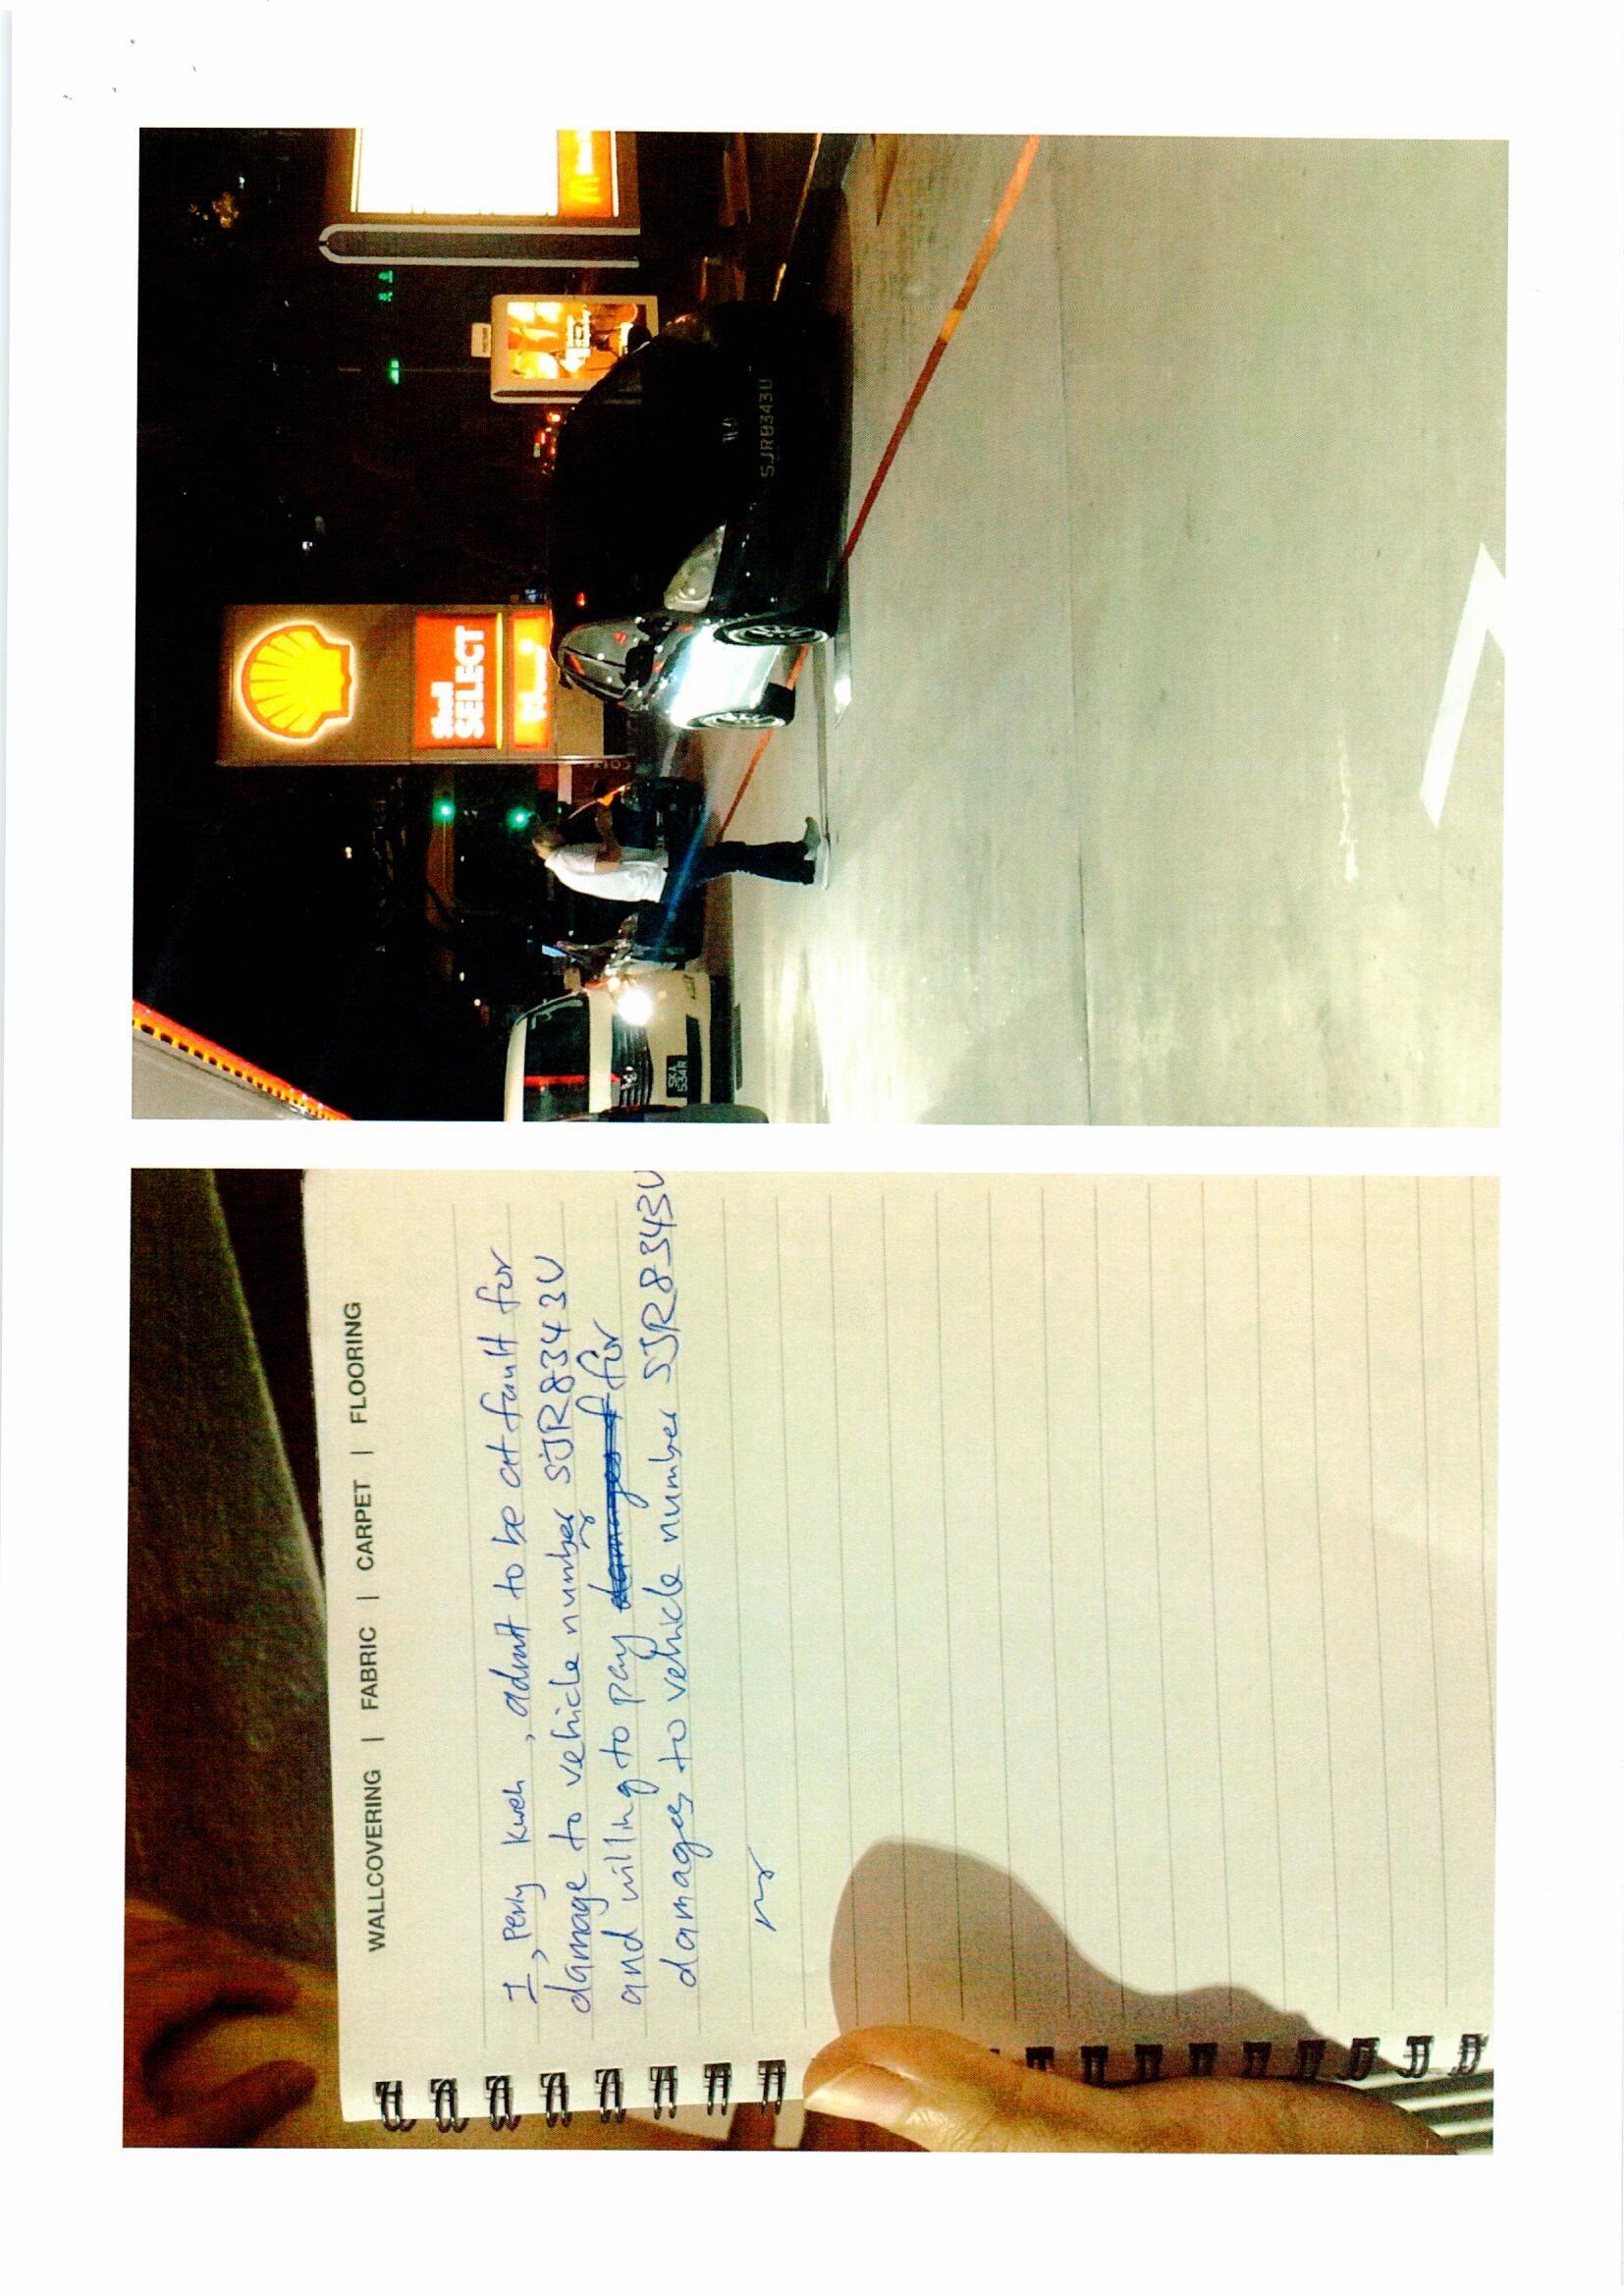 Shell
SELECT
SJR8343U
SKA
534R
WALLCOVERING | FABRIC | CARPET | FLOORING
I, Perly Kweh, admit to be at fault for
damage to vehicle number SJR8343U
and willing to pay damages f for
damages to vehicle number SJR8343U